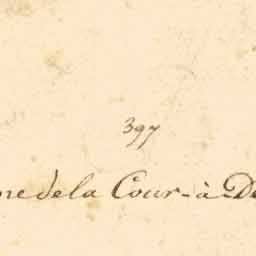 397
me de la Cour-à-De